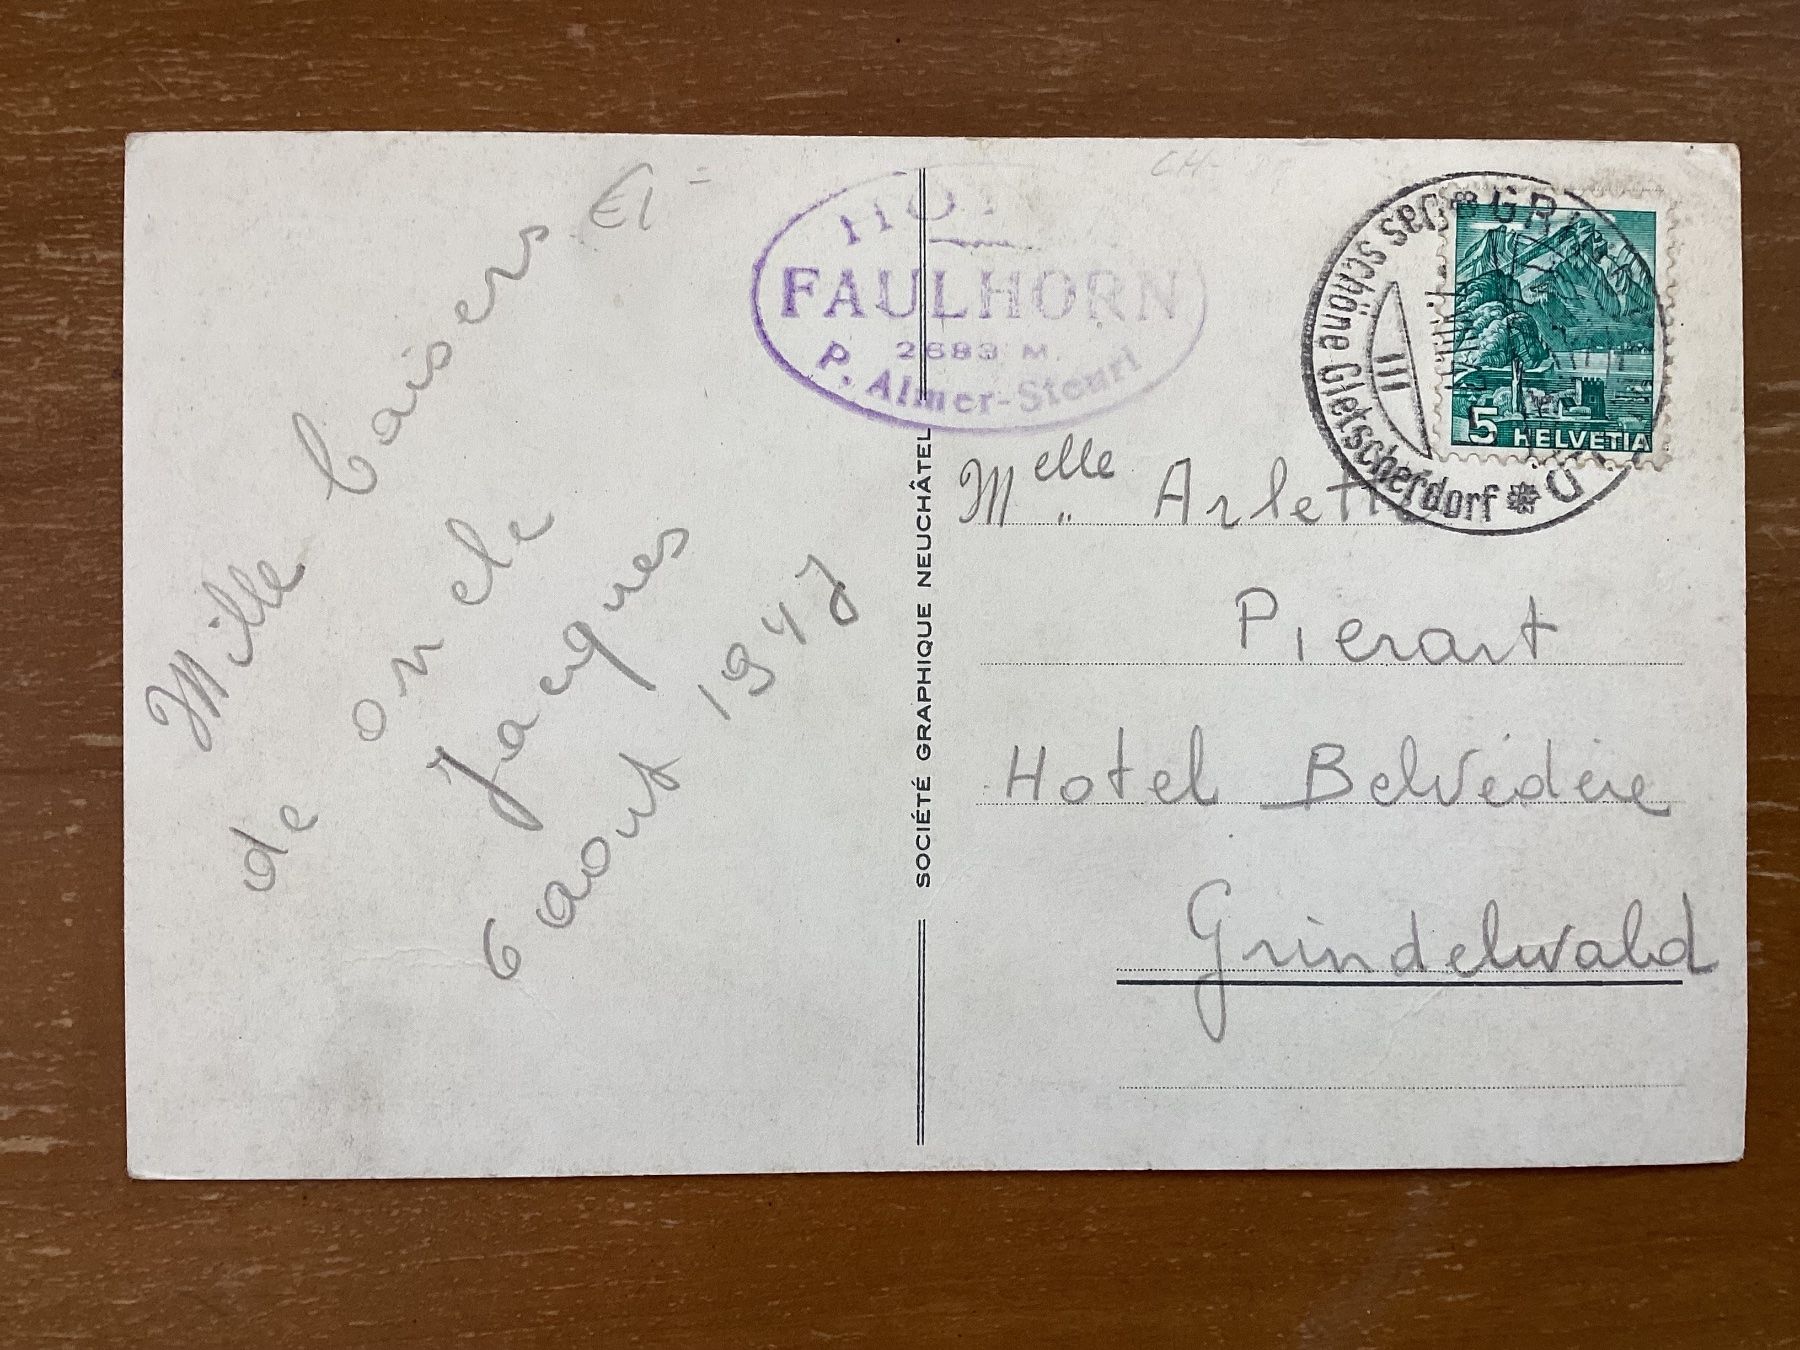 Mille baisers
de oncle
Jacques
6 aout 1947
£1-
FAULHORN
2683 M.
P. Almer-Steuri
SOCIÉTÉ GRAPHIQUE NEUCHÂTEL
Das schöne Gletscherdorf
III
5 HELVETIA
Melle Arlette
Pierart
Hotel Belvédère
Grindelwald